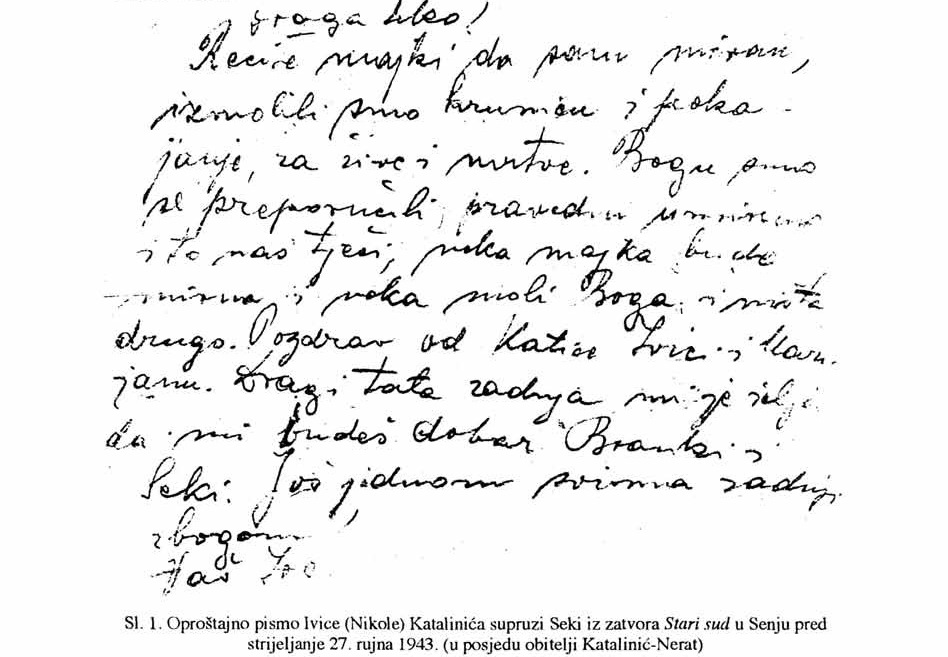 Draga Seko!
Recite majki da sam miran,
izmolili smo krunicu i poka-
janje, za žive i mrtve. Bogu smo
se preporučili, pravedni umiremo
i to nas tješi, neka majka bude
mirna, i neka moli Boga, i ništa
drugo. Pozdrav od Katice Ivice i Mari-
janu. Dragi tata zadnja mi je želja
da mi budeš dobar Branki i
Seki. Još jednom svima zadnji
zbogom,
Vaš Ive
Sl. 1. Oproštajno pismo Ivice (Nikole) Katalinića supruzi Seki iz zatvora Stari sud u Senju pred
strijeljanje 27. rujna 1943. (u posjedu obitelji Katalinić-Nerat)